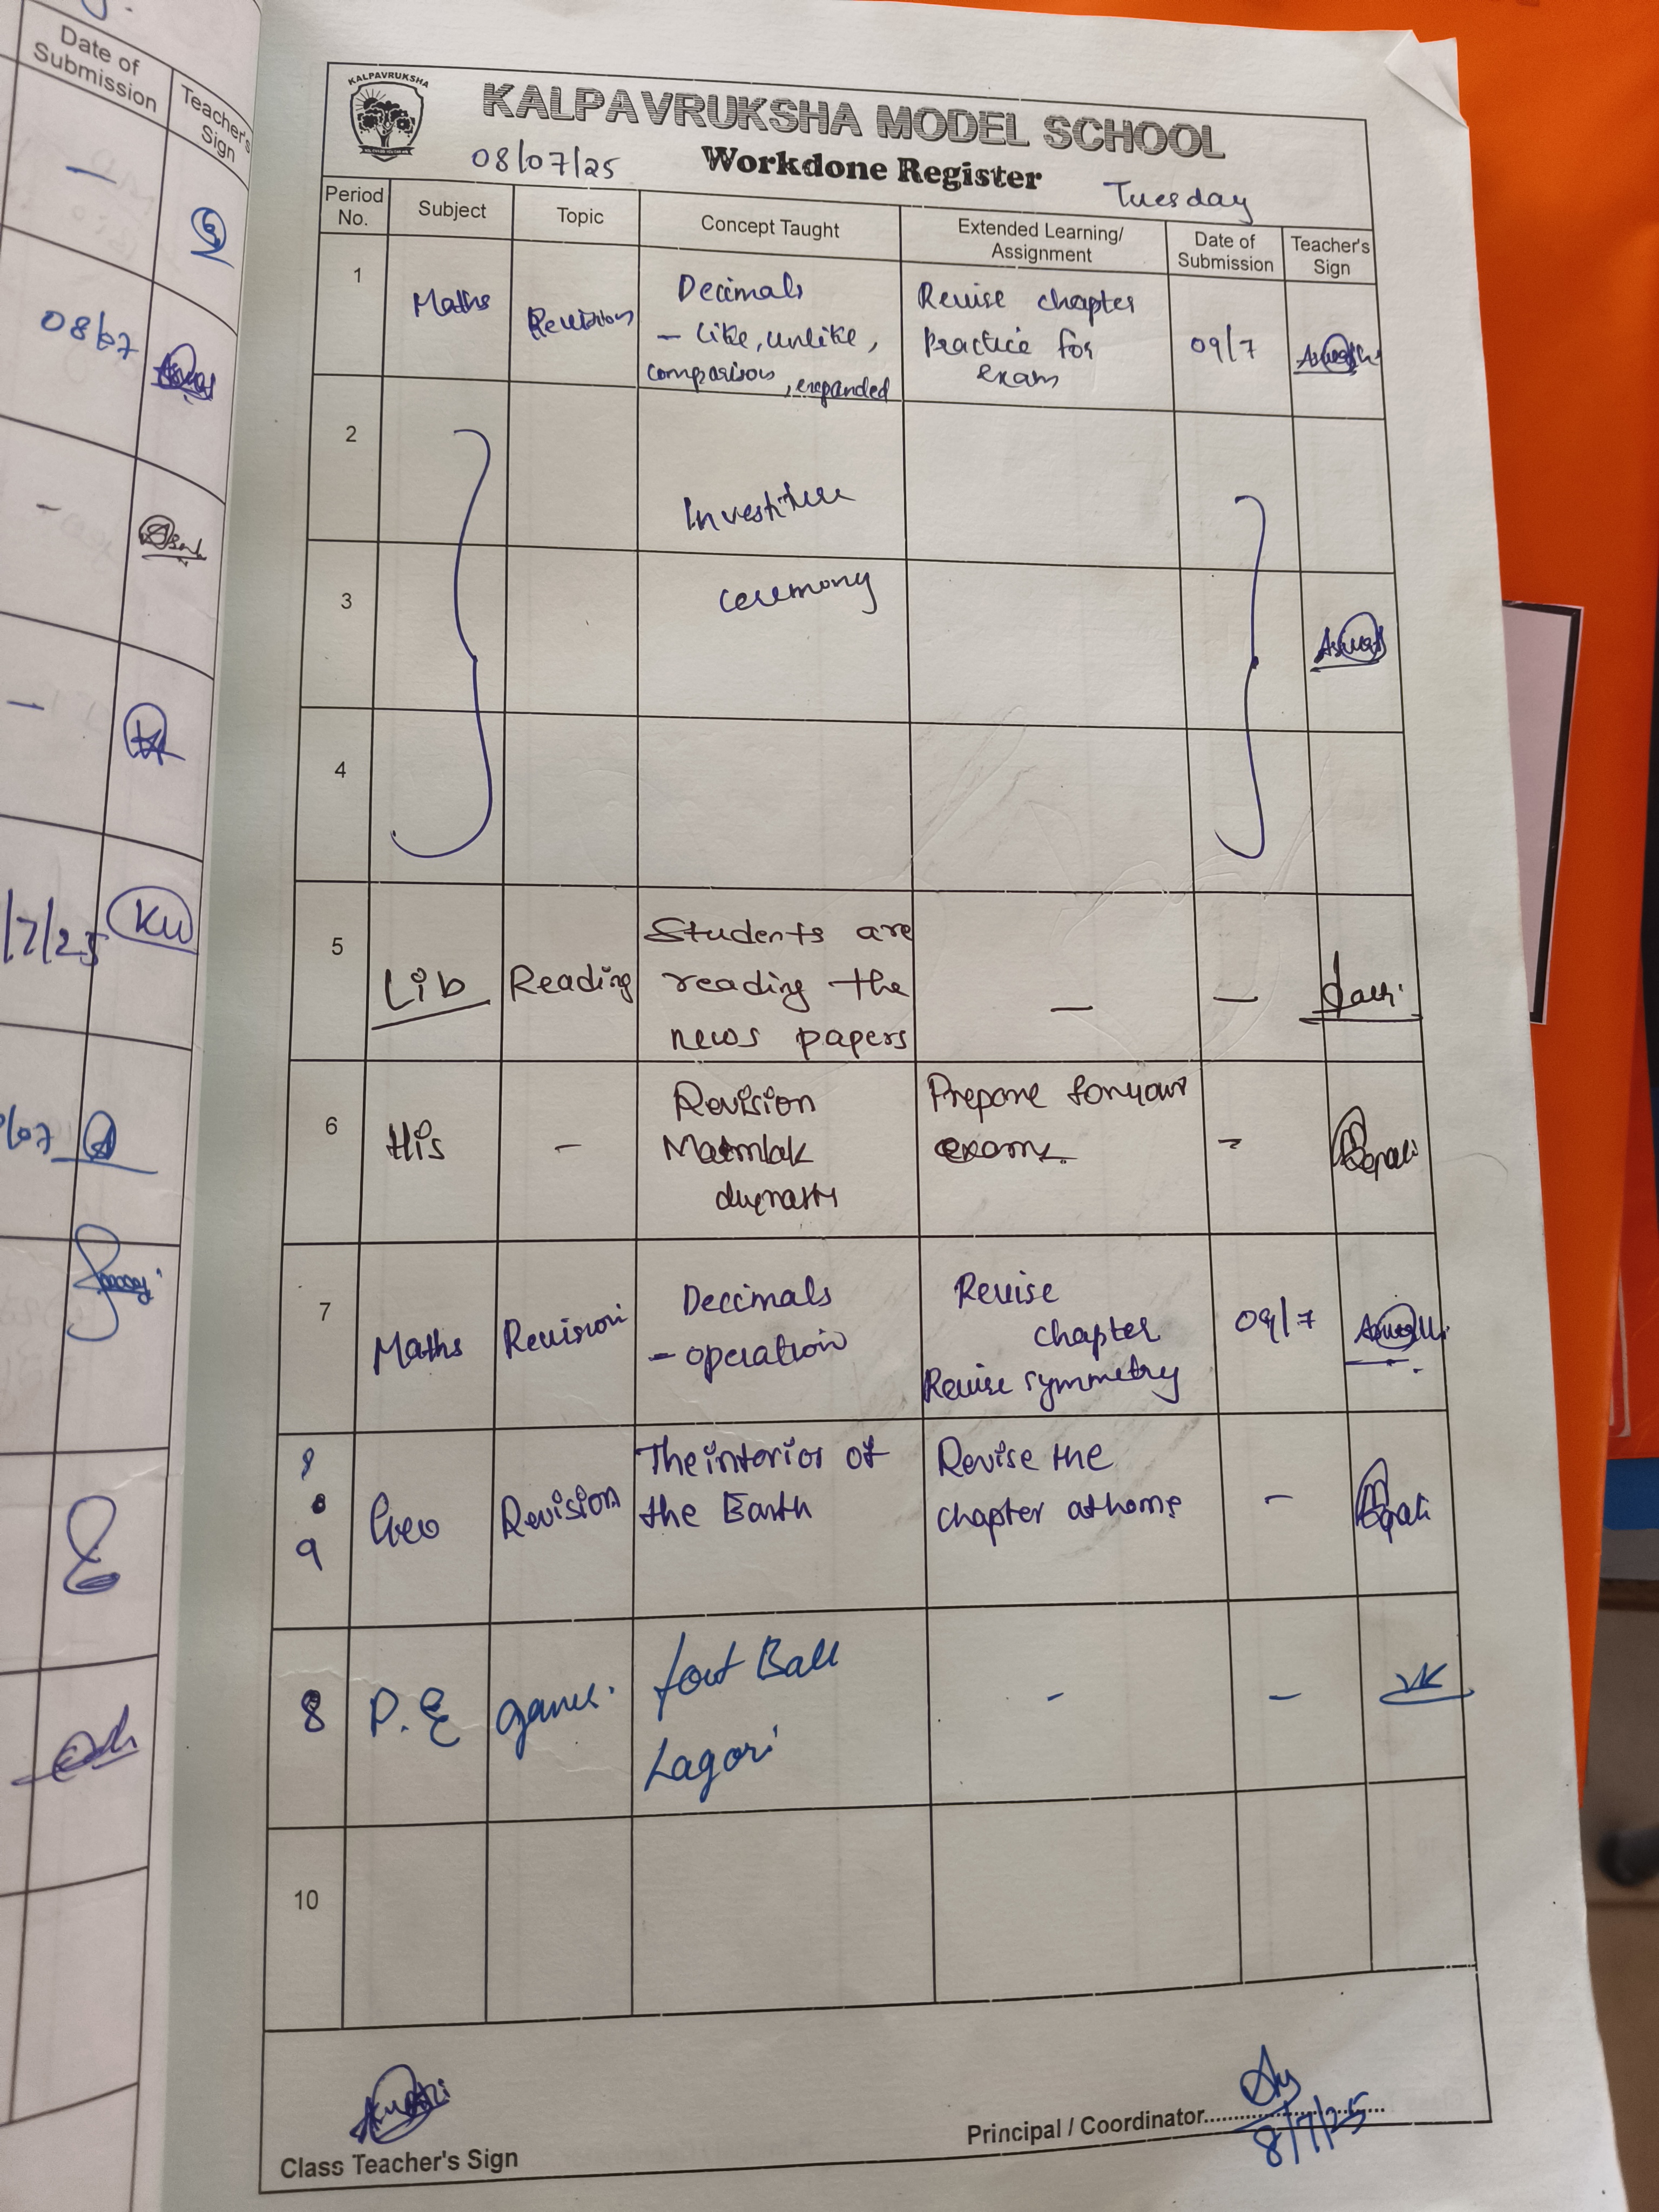 Date of
Submission
Teacher's
Sign
08/07
KW
/7/25
KALPAVRUKSHA
KALPAVRUKSHA MODEL SCHOOL
08/07/25
Workdone Register
Tuesday
Period No.
Subject
Topic
Concept Taught
Extended Learning/ Assignment
Date of Submission
Teacher's Sign
1
Maths
Revision
Decimals
- like, unlike,
comparison, expanded
Revise chapter
Practice for
exam
09/7
2
Investiture
3
ceremony
4
5
Lib
Reading
Students are
reading the
news papers
—
—
6
His
–
Revision
dynasty
Prepare for your
exams.
-
7
Maths
Revision
Decimals
- operation
Revise
chapter
Revise symmetry
09/7
8
9
Geo
Revision
The interior of
the Earth
Revise the
chapter at home
-
8
P.E
games.
foot Ball
Lagori
-
-
VK
10
Class Teacher's Sign
Principal / Coordinator
8/7/25